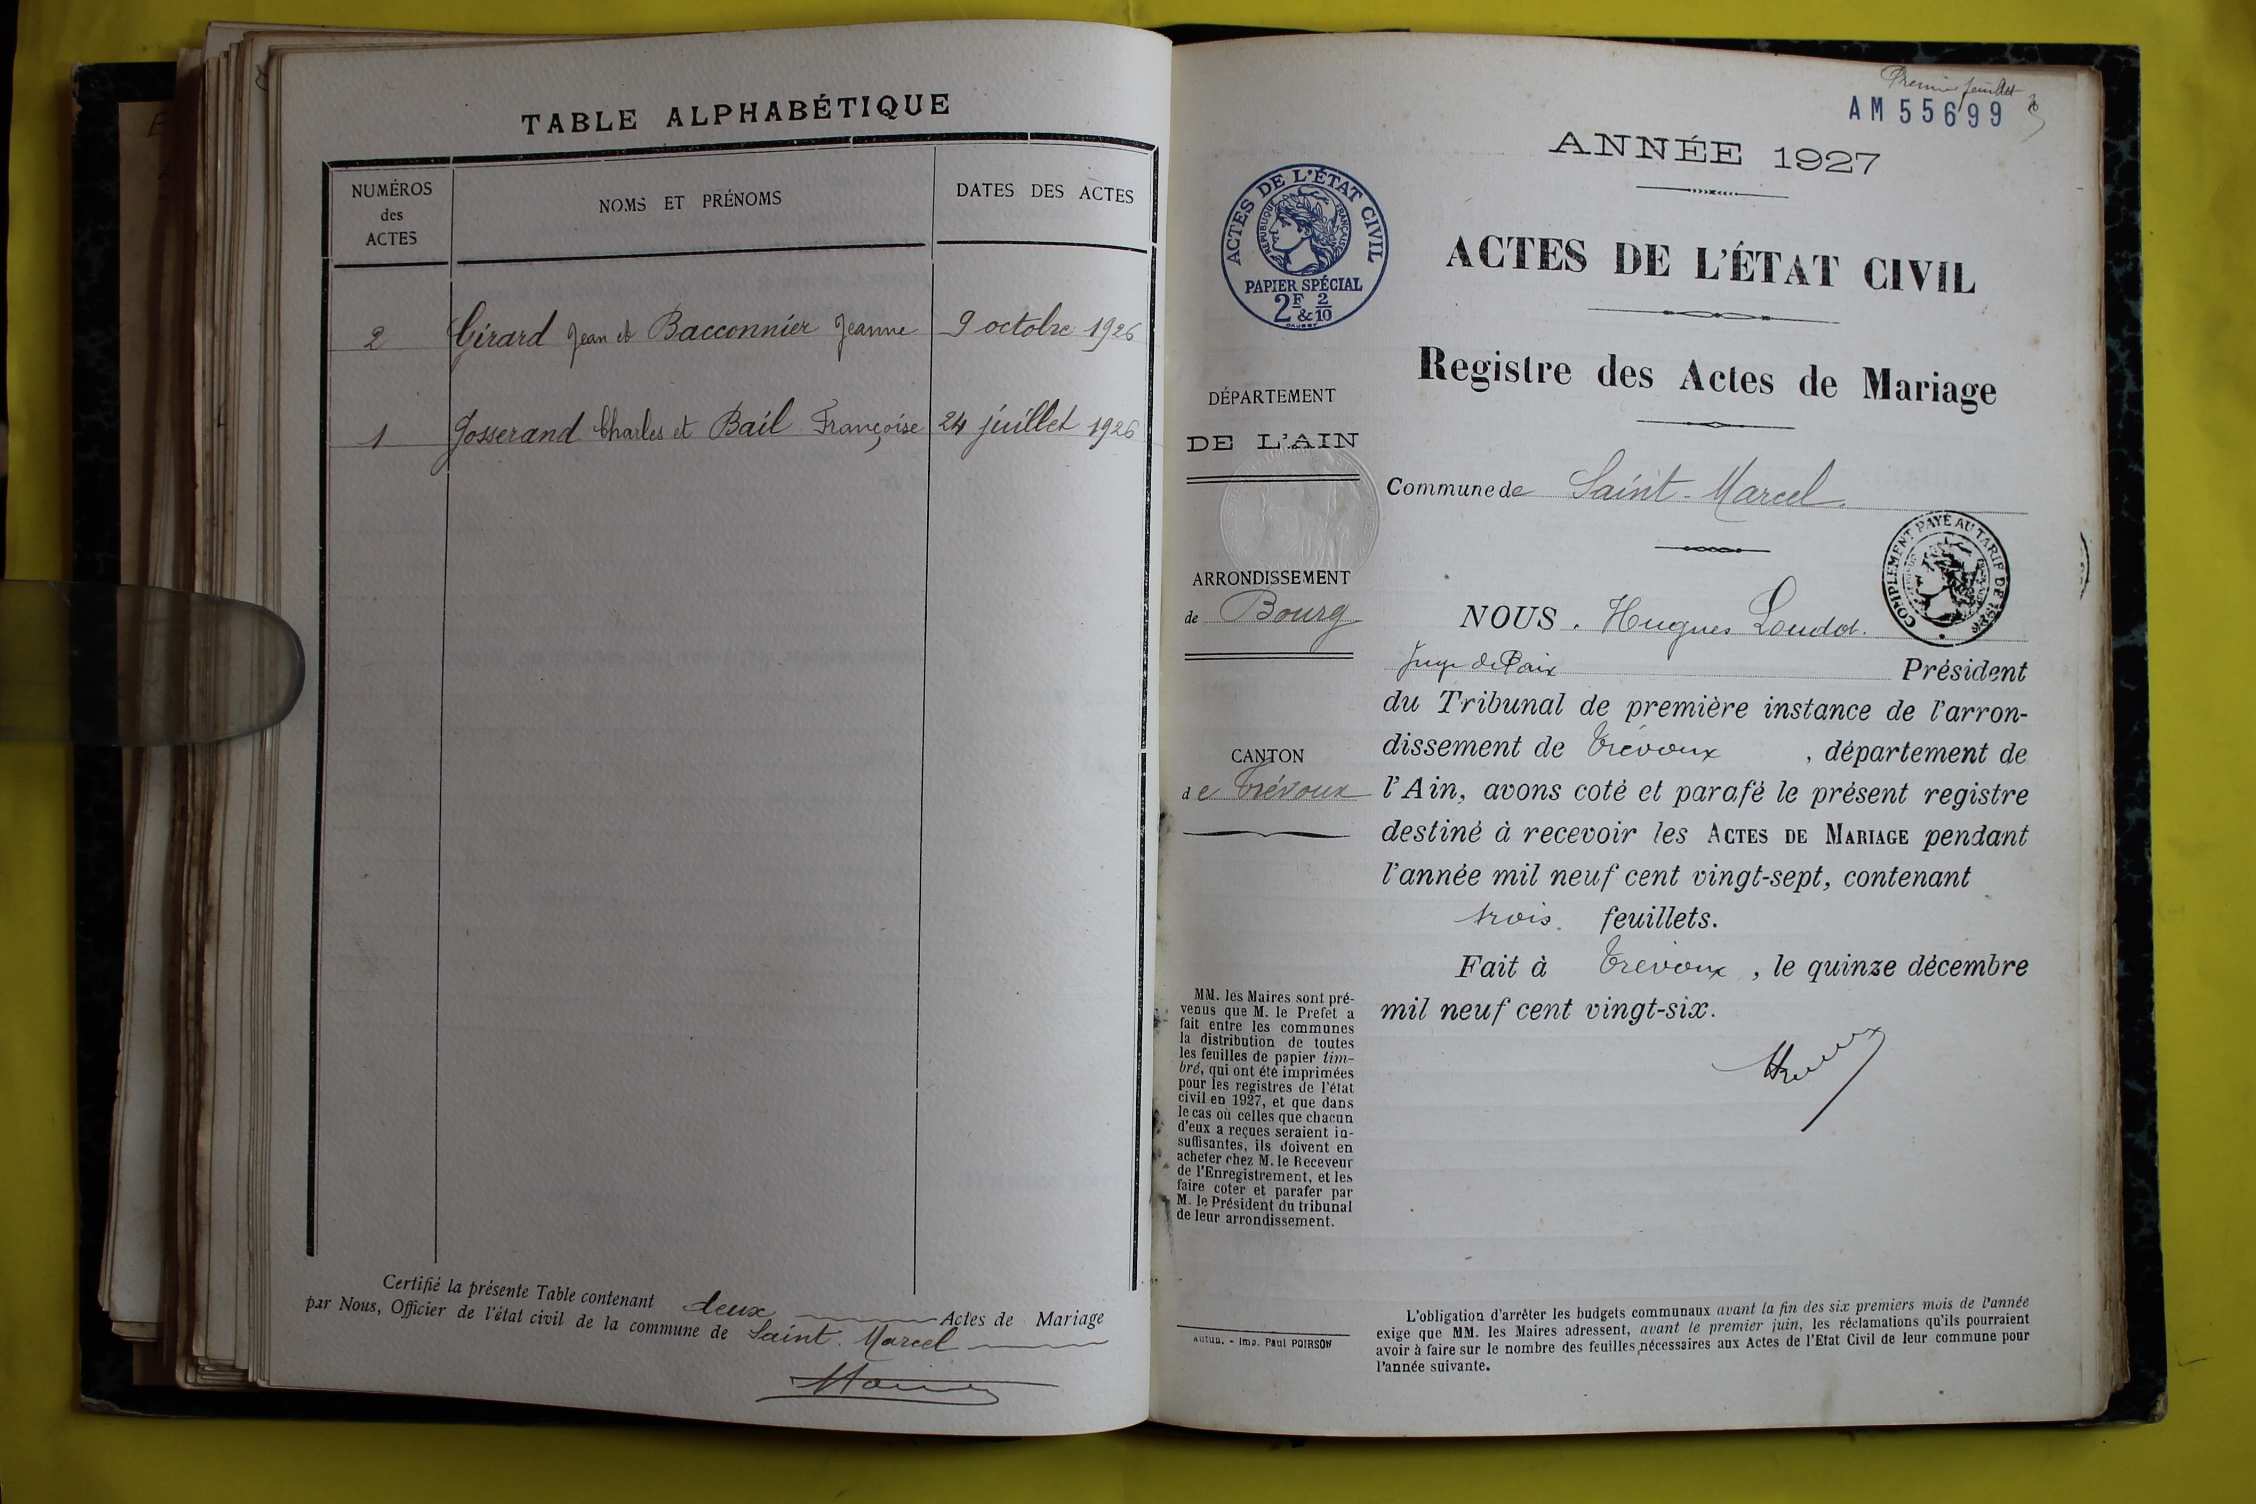 TABLE ALPHABÉTIQUE
NUMÉROS
des
ACTES
NOMS ET PRÉNOMS
DATES DES ACTES
2 Girard Jean et Bacconnier Jeanne 9 octobre 1926
1 Josserand Charles et Bail Françoise 24 juillet 1926
Certifié la présente Table contenant deux Actes de Mariage
par Nous, Officier de l'état civil de la commune de Saint-Marcel
Premier feuillet
AM 55699
ANNÉE 1927
ACTES DE L'ÉTAT CIVIL
RÉPUBLIQUE FRANÇAISE
PAPIER SPÉCIAL
2F & 2/10
ACTES DE L'ÉTAT CIVIL
Registre des Actes de Mariage
DÉPARTEMENT
DE L'AIN
Commune de Saint-Marcel
COMPLÉMENT PAYÉ AU TARIF DE 1926
ARRONDISSEMENT
de Bourg
CANTON
de Trévoux
NOUS, Hugues Loudot.
Juge de Paix Président
du Tribunal de première instance de l'arron-
dissement de Trévoux, département de
l'Ain, avons coté et parafé le présent registre
destiné à recevoir les ACTES DE MARIAGE pendant
l'année mil neuf cent vingt-sept, contenant
trois. feuillets.
Fait à Trévoux, le quinze décembre
mil neuf cent vingt-six.
MM. les Maires sont pré-
venus que M. le Prefet a
fait entre les communes
la distribution de toutes
les feuilles de papier tim-
bré, qui ont été imprimées
pour les registres de l'état
civil en 1927, et que dans
le cas où celles que chacun
d'eux a reçues seraient in-
suffisantes, ils doivent en
acheter chez M. le Receveur
de l'Enregistrement, et les
faire coter et parafer par
M. le Président du tribunal
de leur arrondissement.
Autun. - Imp. Paul POIRSON
L'obligation d'arrêter les budgets communaux avant la fin des six premiers mois de l'année
exige que MM. les Maires adressent, avant le premier juin, les réclamations qu'ils pourraient
avoir à faire sur le nombre des feuilles nécessaires aux Actes de l'Etat Civil de leur commune pour
l'année suivante.